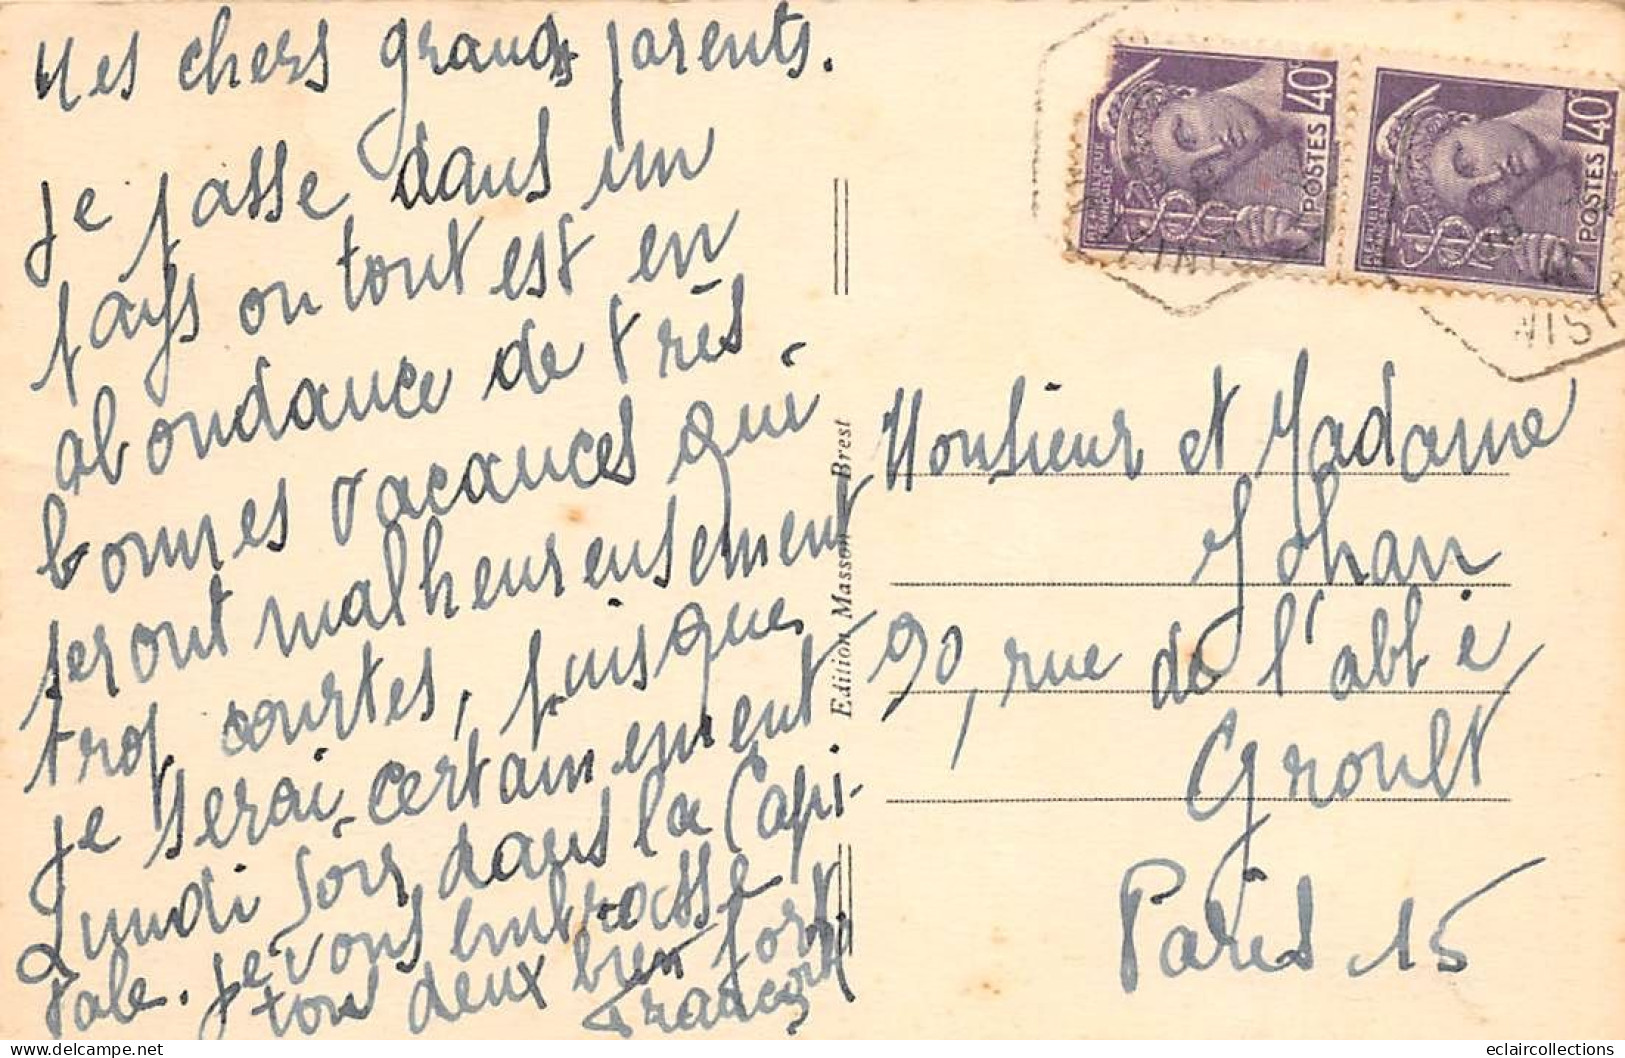 Mes chers grands parents.
Je passe dans un
pays ou tout est en
abondance de très
bonnes vacances qui
seront malheureusement
trop courtes, puisque
je serai certainement
Lundi soir dans la Capi-
tale. Je vous embrasse
tous deux bien fort
François
Edition Masson Brest
RÉPUBLIQUE
FRANÇAISE
POSTES
40c
RÉPUBLIQUE
FRANÇAISE
POSTES
40c
FINIS
NIST
Monsieur et Madame
Johan
90, rue de l'abbé
Groult
Paris 15
eclaircollections